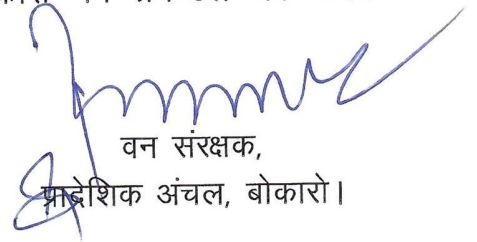 वन संरक्षक,
प्रादेशिक अंचल, बोकारो।